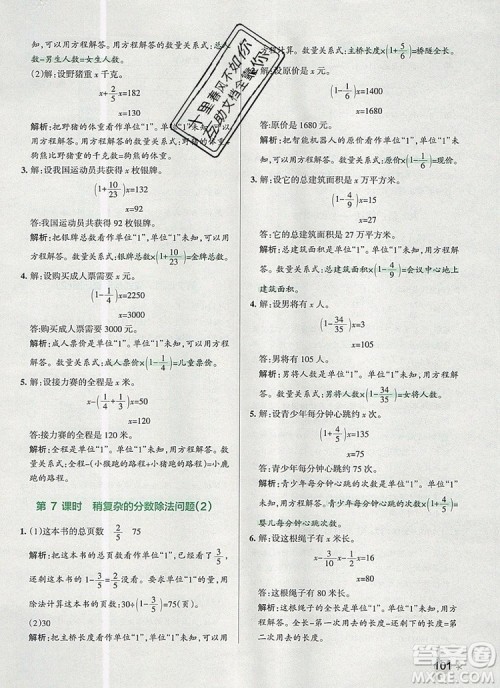 知,可以用方程解答。数量关系式:总人数×
人数=男生人数。
(2)解:设野猪重 x 千克。
x+2/5x=182
x=130
解析:把野猪的体重看作单位“1”。单位“1”未知,可以用方程解答。数量关系式:野猪的体重+狗熊比野猪重的千克数=狗熊的体重。
3. 解:设我国运动员共获得 x 枚银牌。
(1+10/23)x=132
x=92
答:我国运动员共获得 92 枚银牌。
解析:把银牌总数看作单位“1”,单位“1”未知,可以用方程解答。数量关系式:银牌总数×(1+10/23)=金牌总数。
4. 解:设购买成人票需要 x 元。
(1-1/4)x=2250
x=3000
答:购买成人票需要 3000 元。
解析:成人票价是单位“1”,单位“1”未知,可以用方程解答。数量关系式:成人票价×(1-1/4)=儿童票价。
5. 解:设接力赛的全程是 x 米。
x-2/5x=72
x=120
答:接力赛的全程是 120 米。
解析:接力赛的全程是单位“1”,单位“1”未知,可以用方程解答。数量关系式:接力赛的全程-(小猴跑的路程+小狗跑的路程+小松鼠跑的路程)=小鹿跑的路程。
第 7 课时 稍复杂的分数除法问题(2)
1. (1)这本书的总页数 2/5 75
解析:把这本书的总页数看作单位“1”,看了3/5,还剩这本书的1-3/5=2/5,还剩 30 页没有看,用除法计算这本书的页数:30÷(1-3/5)=75(页)。
(2)30
解析:把主桥长度看作单位“1”,单位“1”未知,可以
用方程计算。数量关系式:主桥长度×(1+5/6)=桥隧全长。
2. 解:设原价是 x 元。
(1-1/6)x=1400
x=1680
答:原价是 1680 元。
解析:把智能机器人的原价看作单位“1”,单位“1”未知,可以用方程解答。数量关系式:原价×(1-1/6)=现价。
3. 解:设它的总建筑面积是 x 万平方米。
(1-4/9)x=15
x=27
答:它的总建筑面积是 27 万平方米。
解析:总建筑面积是单位“1”,单位“1”未知,可以用方程解答。数量关系式:总建筑面积×(1-4/9)=会议中心地上建筑面积。
4. 解:设男将有 x 人。
(1-34/35)x=3
x=105
答:男将有 105 人。
解析:男将人数是单位“1”,单位“1”未知,可以用方程解答。数量关系式:男将人数×(1-34/35)=女将人数。
5. 解:设青少年每分钟心跳约 x 次。
(1+4/5)x=135
x=75
答:青少年每分钟心跳约 75 次。
解析:青少年每分钟心跳的次数是单位“1”,单位“1”未知,可以用方程解答。数量关系式:青少年每分钟心跳的次数×(1+4/5)=婴儿每分钟心跳的次数。
6. 解:设这根绳子有 x 米长。
x=80
答:这根绳子有 80 米长。
解析:这根绳子的全长是单位“1”,单位“1”未知,可以用方程解答。数量关系式:全长-第一次用去的长度-还剩下的长度=第二次用去的长度。
101
十里春风不如你
互助文档全靠你
答案圈
MXQE.COM